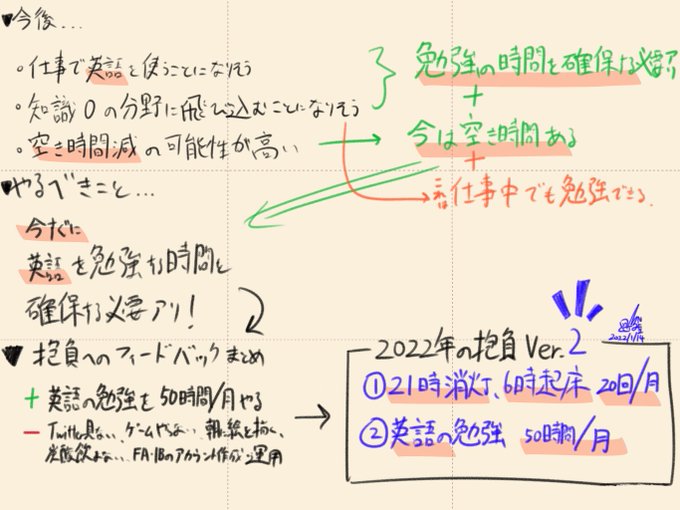 ▼今後...
・仕事で英語を使うことになりそう
・知識0の分野に飛び込むことになりそう
・空き時間減の可能性が高い
勉強の時間を確保する必要アリ
+
今は空き時間ある
+
これは仕事中でも勉強できる.
▼やるべきこと...
今すぐに
英語を勉強する時間を
確保する必要アリ!
▼抱負へのフィードバックまとめ
+ 英語の勉強を50時間/月やる
− Twitter見ない、ゲームやらない 朝に絵を描く、
炭酸飲まない、FA・IBのアカウント作成・運用
2022/1/14
2022年の抱負 Ver.2
①21時消灯、6時起床 20回/月
②英語の勉強 50時間/月